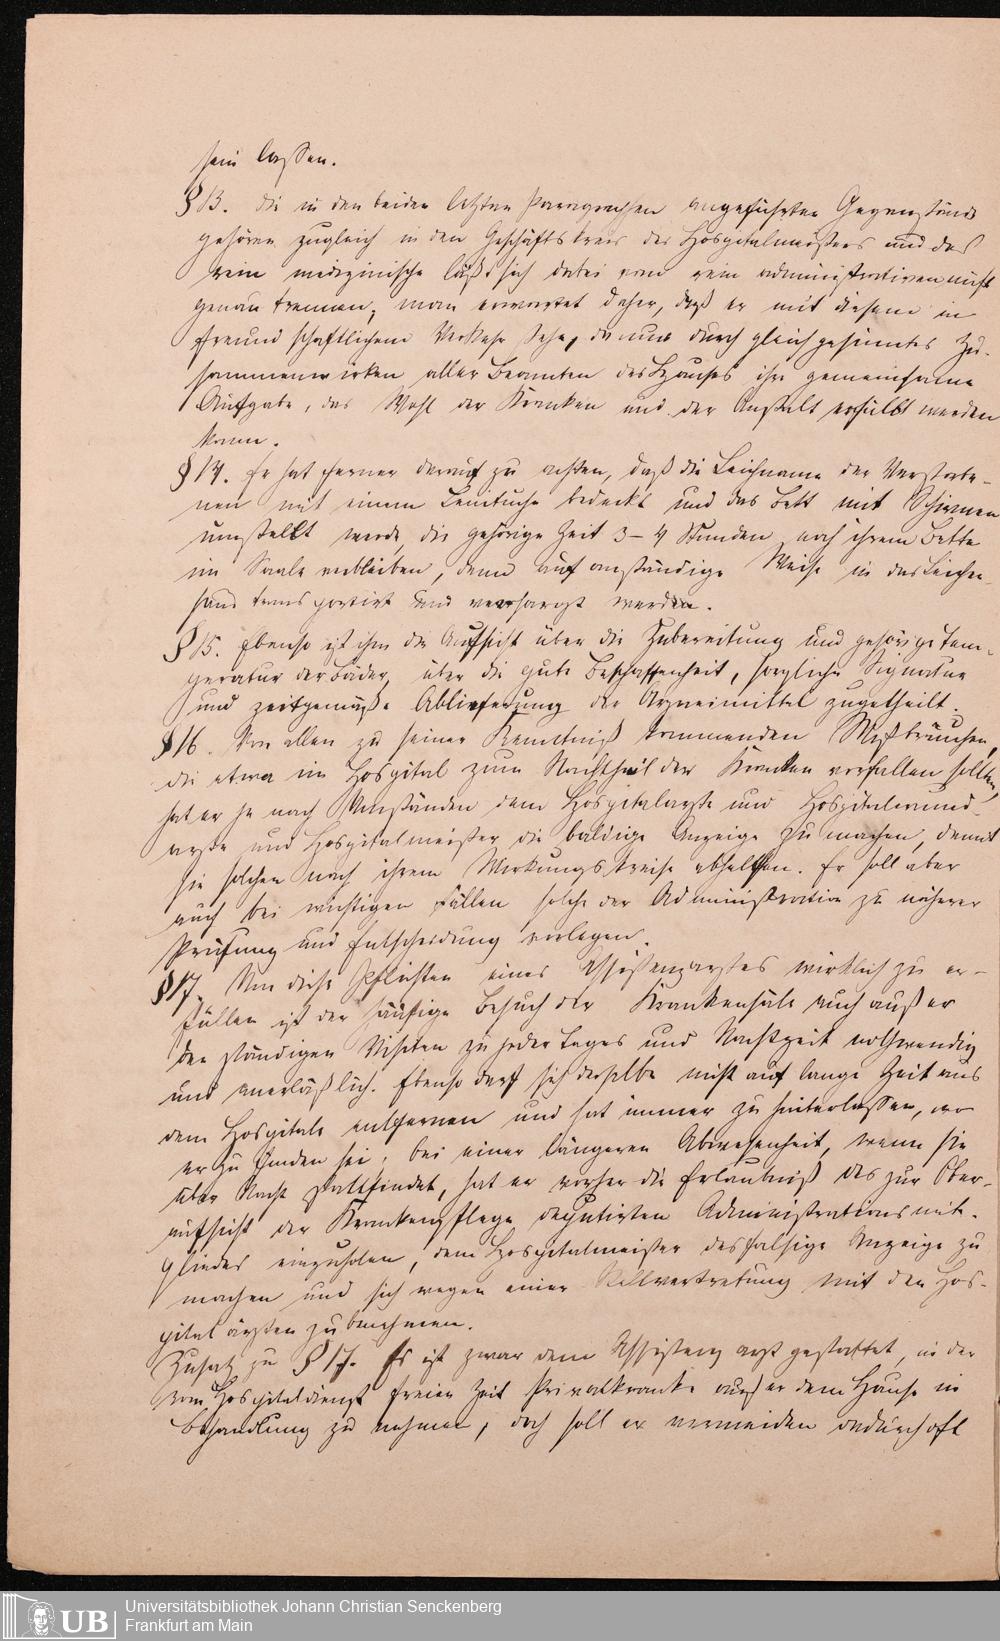 sein lassen.
§ 13. Die in den beiden letzten Paragraphen angeführten Gegenstände
gehören zugleich in den Geschäftskreis des Hospitalmeisters und das
rein medizinische läßt sich dabei vom rein administrativen nicht
genau trennen; man erwartet daher, daß er mit diesem in
freundschaftlichem Verkehr stehe, da nur durch gleichgesinntes Zu-
sammenwirken aller Beamten des Hauses ihre gemeinsame
Aufgabe, das Wohl der Kranken und der Anstalt erfüllt werden
kann.
§ 14. Er hat ferner darauf zu achten, daß die Leichname der Verstorbe-
nen mit einem Leintuche bedeckt und das Bett mit Schirmen
umstellt werde, die gehörige Zeit 3-4 Stunden noch ihrem Bette
im Saale verbleiben, dann auf anständige Weise in das Leichen-
haus transportirt und versorgt werden.
§ 15. Ebenso ist ihm die Aufsicht über die Zubereitung und gehörige Tem-
peratur der Bäder, über die gute Beschaffenheit, sorgliche Signatur
und zeitgemäße Ablieferung der Arzneimittel zugetheilt.
§ 16. Von allen zu seiner Kenntniß kommenden Mißbräuchen,
die etwa im Hospital zum Nachtheil der Kranken vorfallen sollten,
hat er je nach Umständen dem Hospitalarzte und Hospitalwund-
arzte und Hospitalmeister die baldige Anzeige zu machen, damit
sie solchen nach ihrem Wirkungskreise abhelfen. Er soll aber
auch bei wichtigen Fällen solche der Administration zu näherer
Prüfung und Entscheidung vorlegen.
§ 17. Um diese Pflichten eines Assistenzarztes wirklich zu er-
füllen ist der häufige Besuch der Krankensäle auch außer
den ständigen Visiten zu jeder Tages und Nachtzeit nothwendig
und unerläßlich. Ebenso darf sich derselbe nicht auf lange Zeit aus
dem Hospitale entfernen und hat immer zu hinterlassen, wo
er zu finden sei; bei einer längeren Abwesenheit, wenn sie
über Nacht stattfindet, hat er vorher die Erlaubniß des zur Ober-
aufsicht der Krankenpflege deputirten Administrationsmit-
gliedes einzuholen, dem Hospitalmeister desfalsige Anzeige zu
machen und sich wegen einer Stellvertretung mit den Hos-
pitalärzten zu benehmen.
Zusatz zu § 17. Es ist zwar dem Assistenzarzt gestattet, in der
vom Hospitaldienst freien Zeit Privatkranke außer dem Hause in
Behandlung zu nehmen, doch soll er vermeiden dadurch oft
Universitätsbibliothek Johann Christian Senckenberg
UB Frankfurt am Main